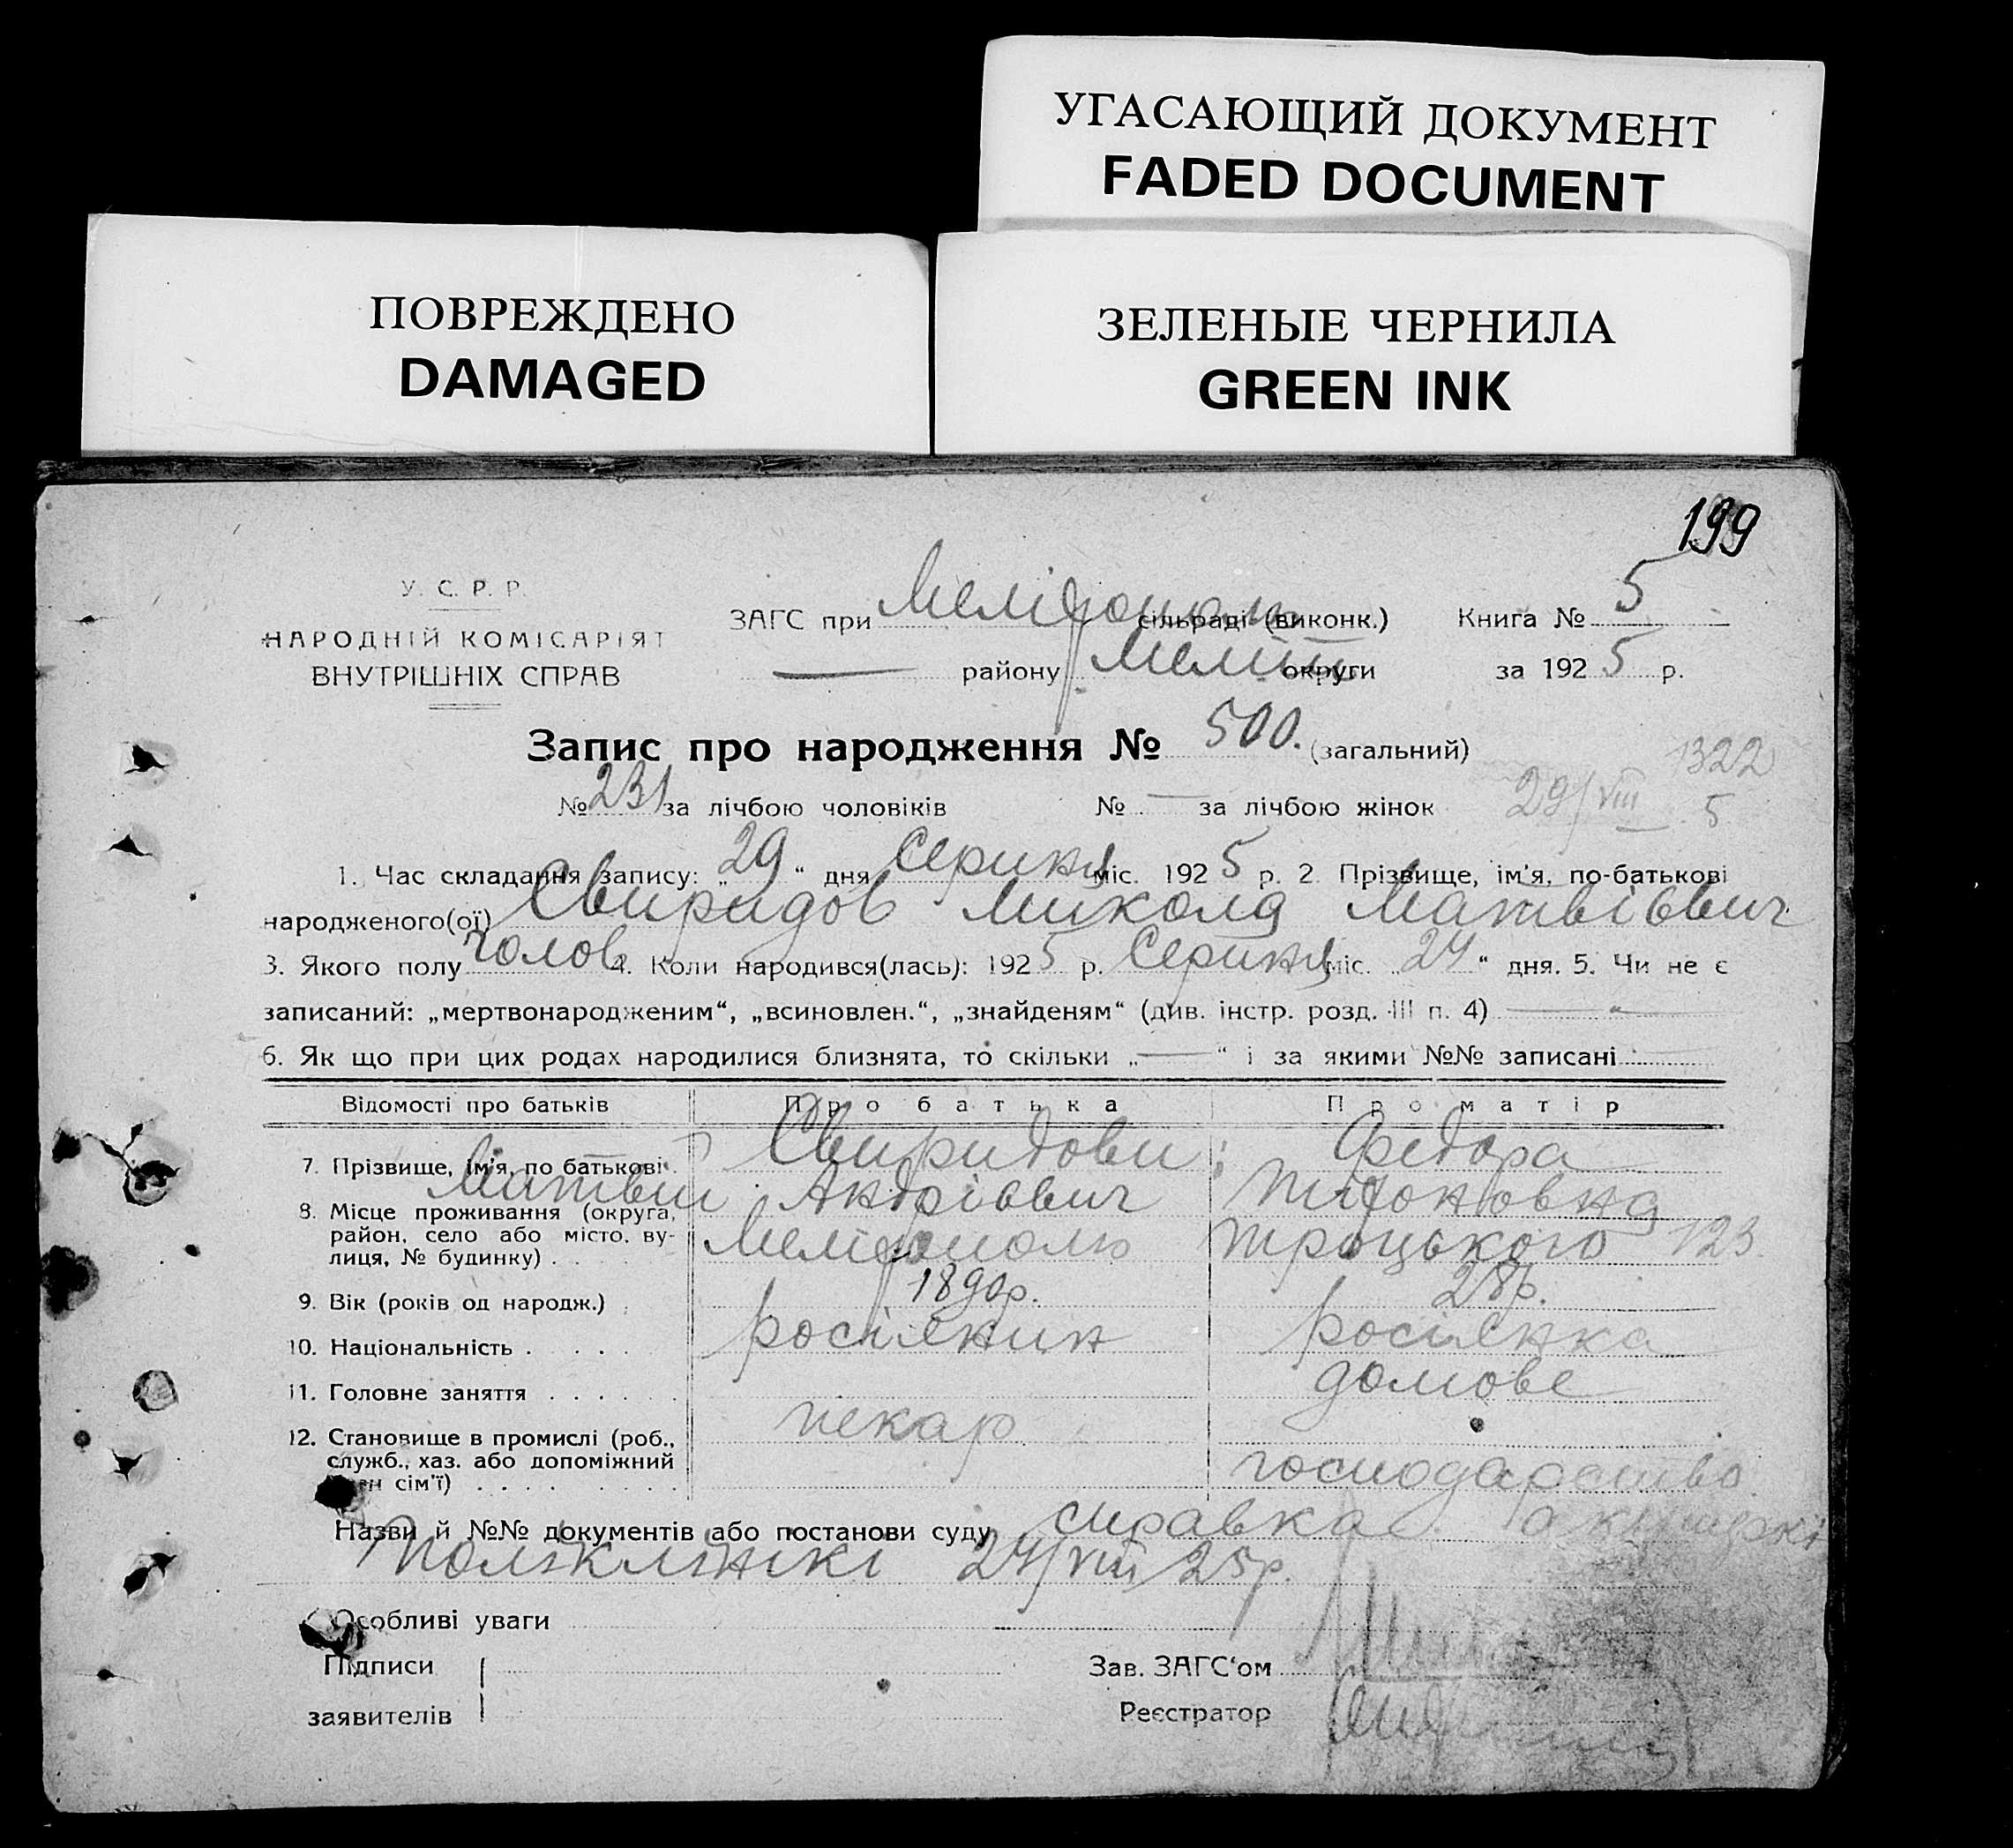 УГАСАЮЩИЙ ДОКУМЕНТ
FADED DOCUMENT
ПОВРЕЖДЕНО
DAMAGED
ЗЕЛЕНЫЕ ЧЕРНИЛА
GREEN INK
199
У. С. Р. Р.
НАРОДНІЙ КОМІСАРІЯТ
ВНУТРІШНІХ СПРАВ
ЗАГС при Меліфополь сільраді (виконк.) Книга № 5
— району Меліт округи за 1925 р.
Запис про народження № 500. (загальний)
1322
№ 231 за лічбою чоловіків № — за лічбою жінок 29/VIII 5
1. Час складання запису: „29“ дня Серпня міс. 1925 р. 2 Прізвище, ім'я, по-батькові
народженого(ої) Свиридов Микола Матвієвич
3. Якого полу чолов 4. Коли народився(лась): 1925 р. Серпня міс. „24“ дня. 5. Чи не є
записаний: „мертвонародженим“, „всиновлен.“, „знайденям“ (див. інстр. розд. III п. 4) —
6. Як що при цих родах народилися близнята, то скільки „—“ і за якими №№ записані
Відомості про батьків Про батька Про матір
7. Прізвище, ім'я, по батькові Свиридови Федора
Матвій Андрієвич Тифоновна
8. Місце проживання (округа, район, село або місто, вулиця, № будинку) Меліфополь Троцького 123
9. Вік (років од народж.) 1890р. 28р.
10. Національність росіянин росіянка
11. Головне заняття домове
пекар
12. Становище в промислі (роб., служб., хаз. або допоміжний сім'ї) господарство
Назви й №№ документів або постанови суду справка акушеркі
Поліклінікі 24/VIII 25р.
Особливі уваги
Підписи
заявителів
Зав. ЗАГС'ом
Реєстратор